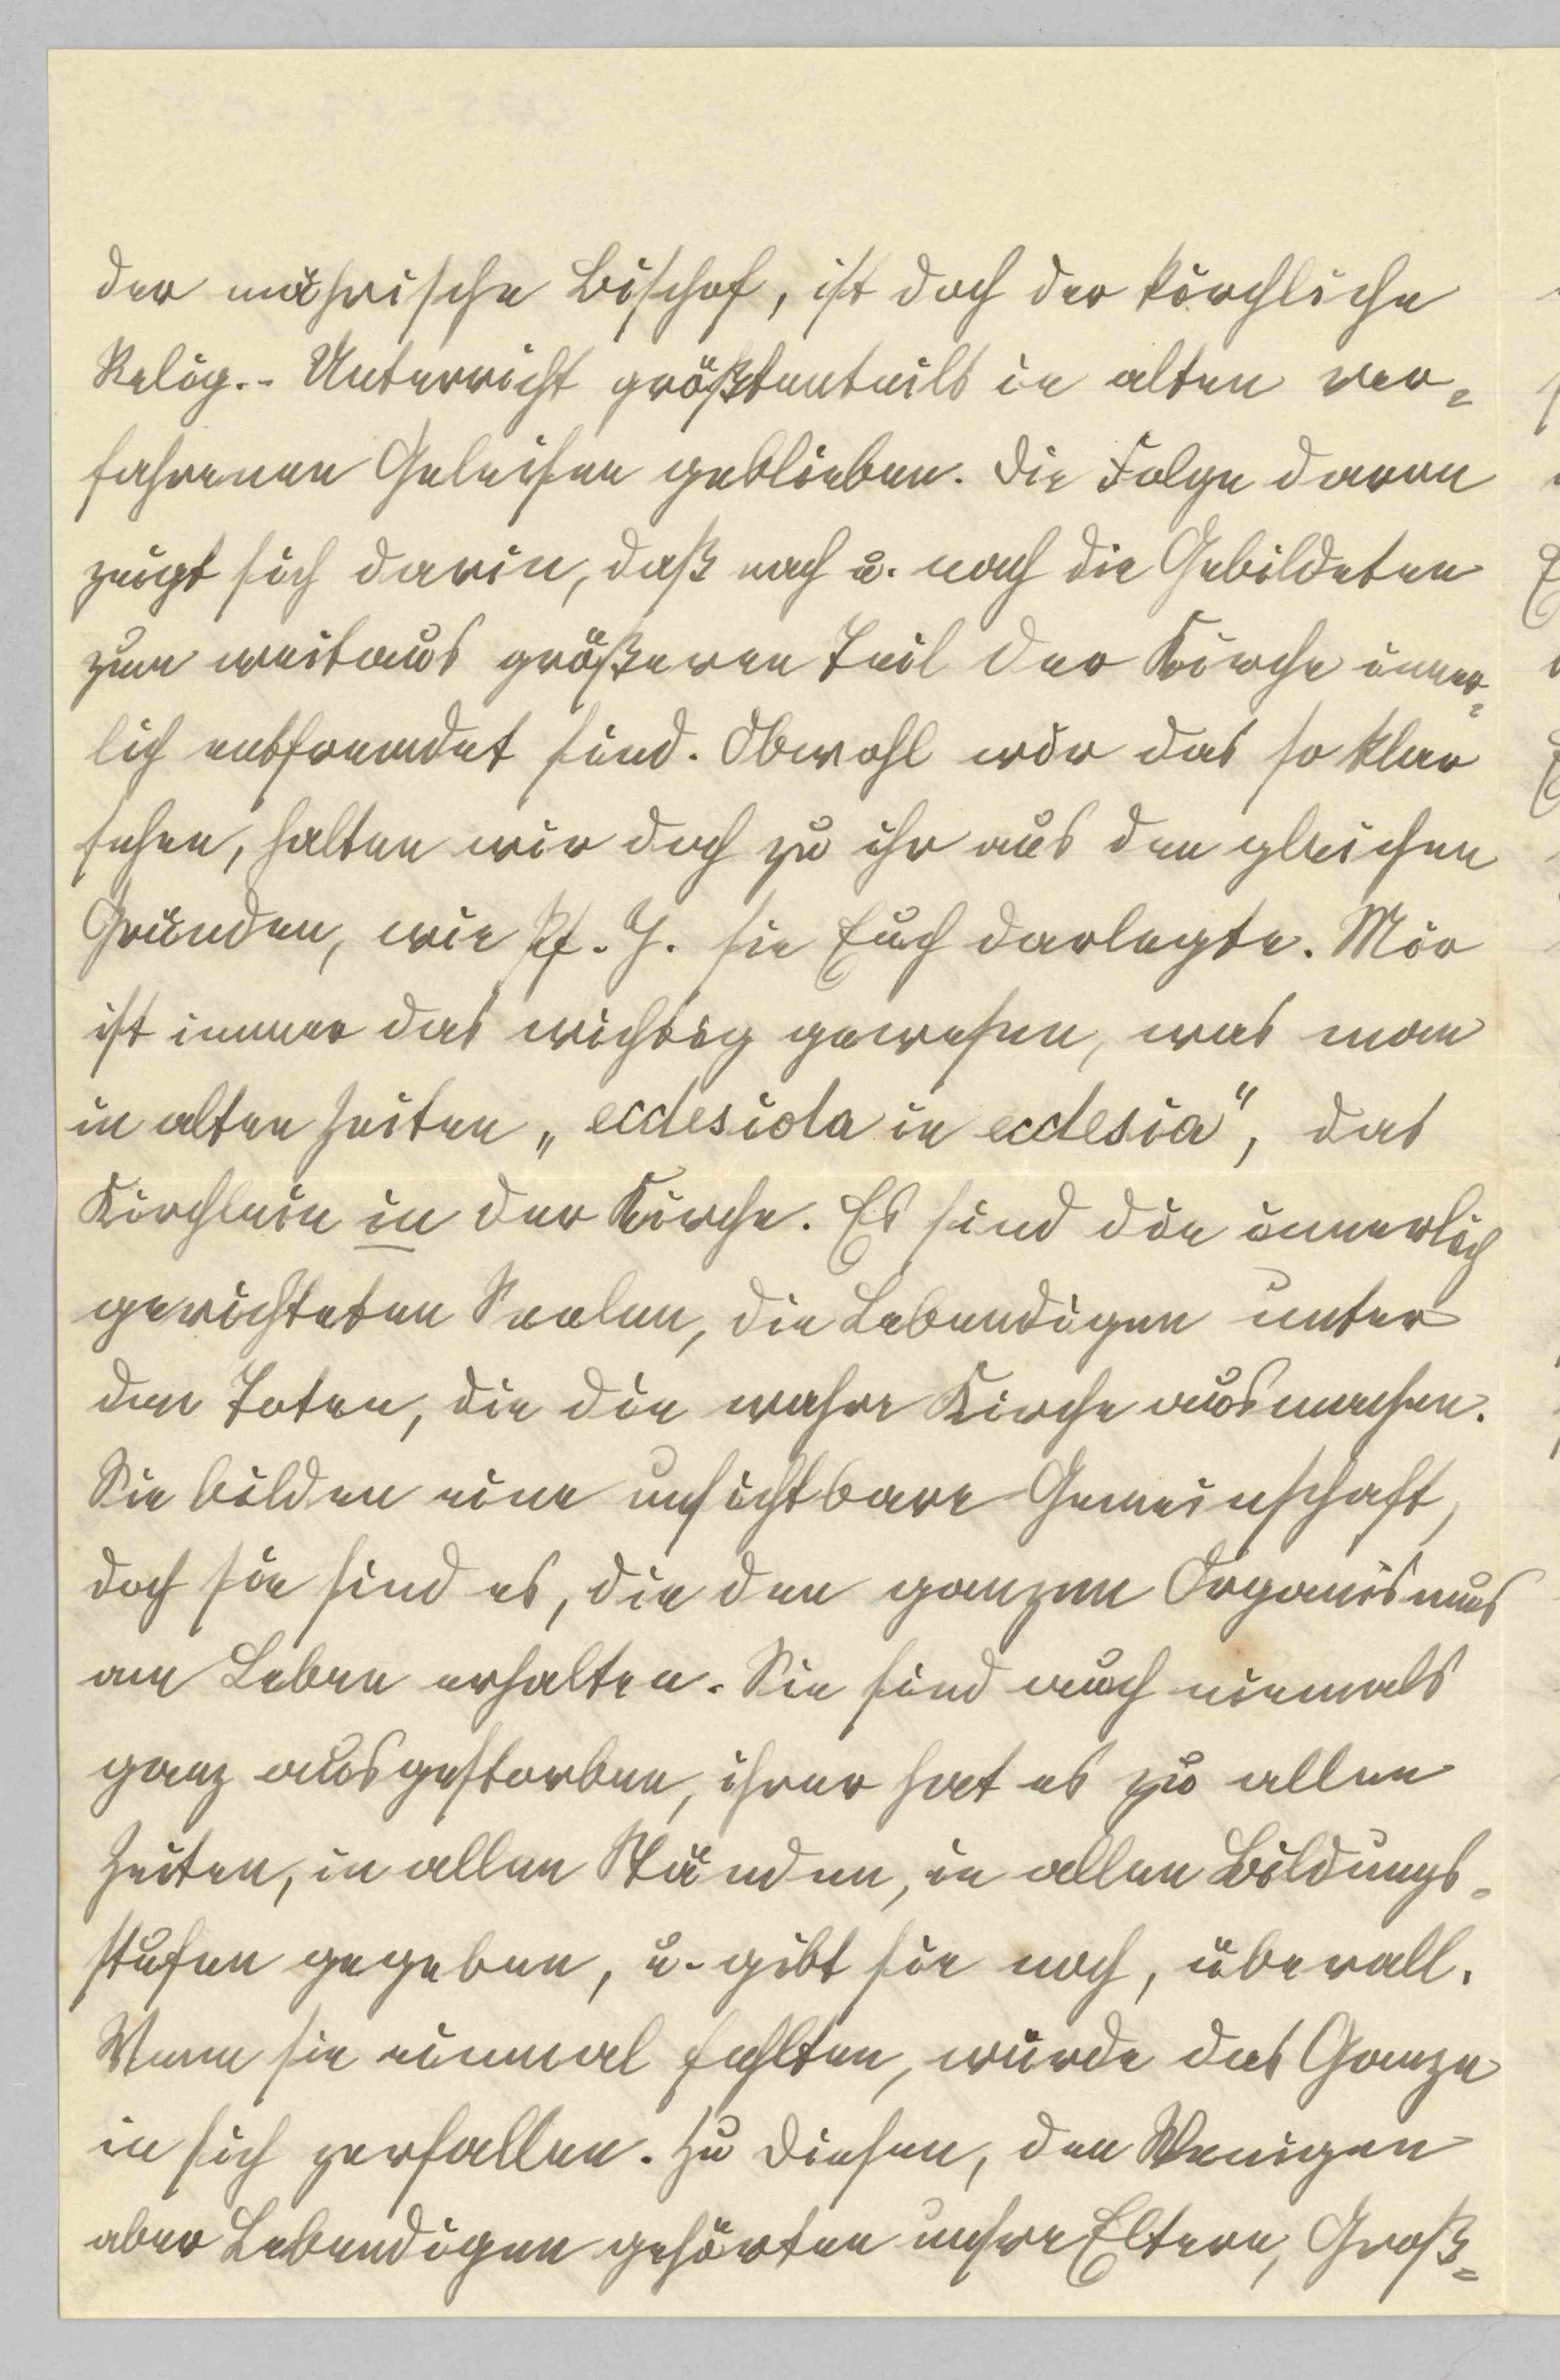 der mährische Bischof, ist doch der kirchliche
Relig.- Unterricht größtenteils in alten ver-
fahrenen Geleisen geblieben. Die Folge davon
zeigt sich darin, daß nach u. nach die Gebildeten
zum weitaus größeren Teil der Kirche inner-
lich entfremdet sind. Obwohl wir das so klar
sehen, halten wir doch zu ihr aus den gleichen
Gründen, wie Pf. J. sie Euch darlegte. Mir
ist immer das wichtig gewesen, was man
in alten Zeiten „ecclesiola in ecclesia“, das
Kirchlein in der Kirche. Es sind die innerlich
gerichteten Seelen, die Lebendigen unter
den Toten, die die wahre Kirche ausmachen.
Sie bilden eine unsichtbare Gemeinschaft,
doch sie sind es, die den ganzen Organismus
am Leben erhalten. Sie sind auch niemals
ganz ausgestorben, ihrer hat es zu allen
Zeiten, in allen Ständen, in allen Bildungs-
stufen gegeben, u. gibt sie noch, überall.
Wenn sie einmal fehlten, würde das Ganze
in sich zerfallen. Zu diesen, den Wenigen
aber Lebendigen gehörten unsre Eltern, Groß-